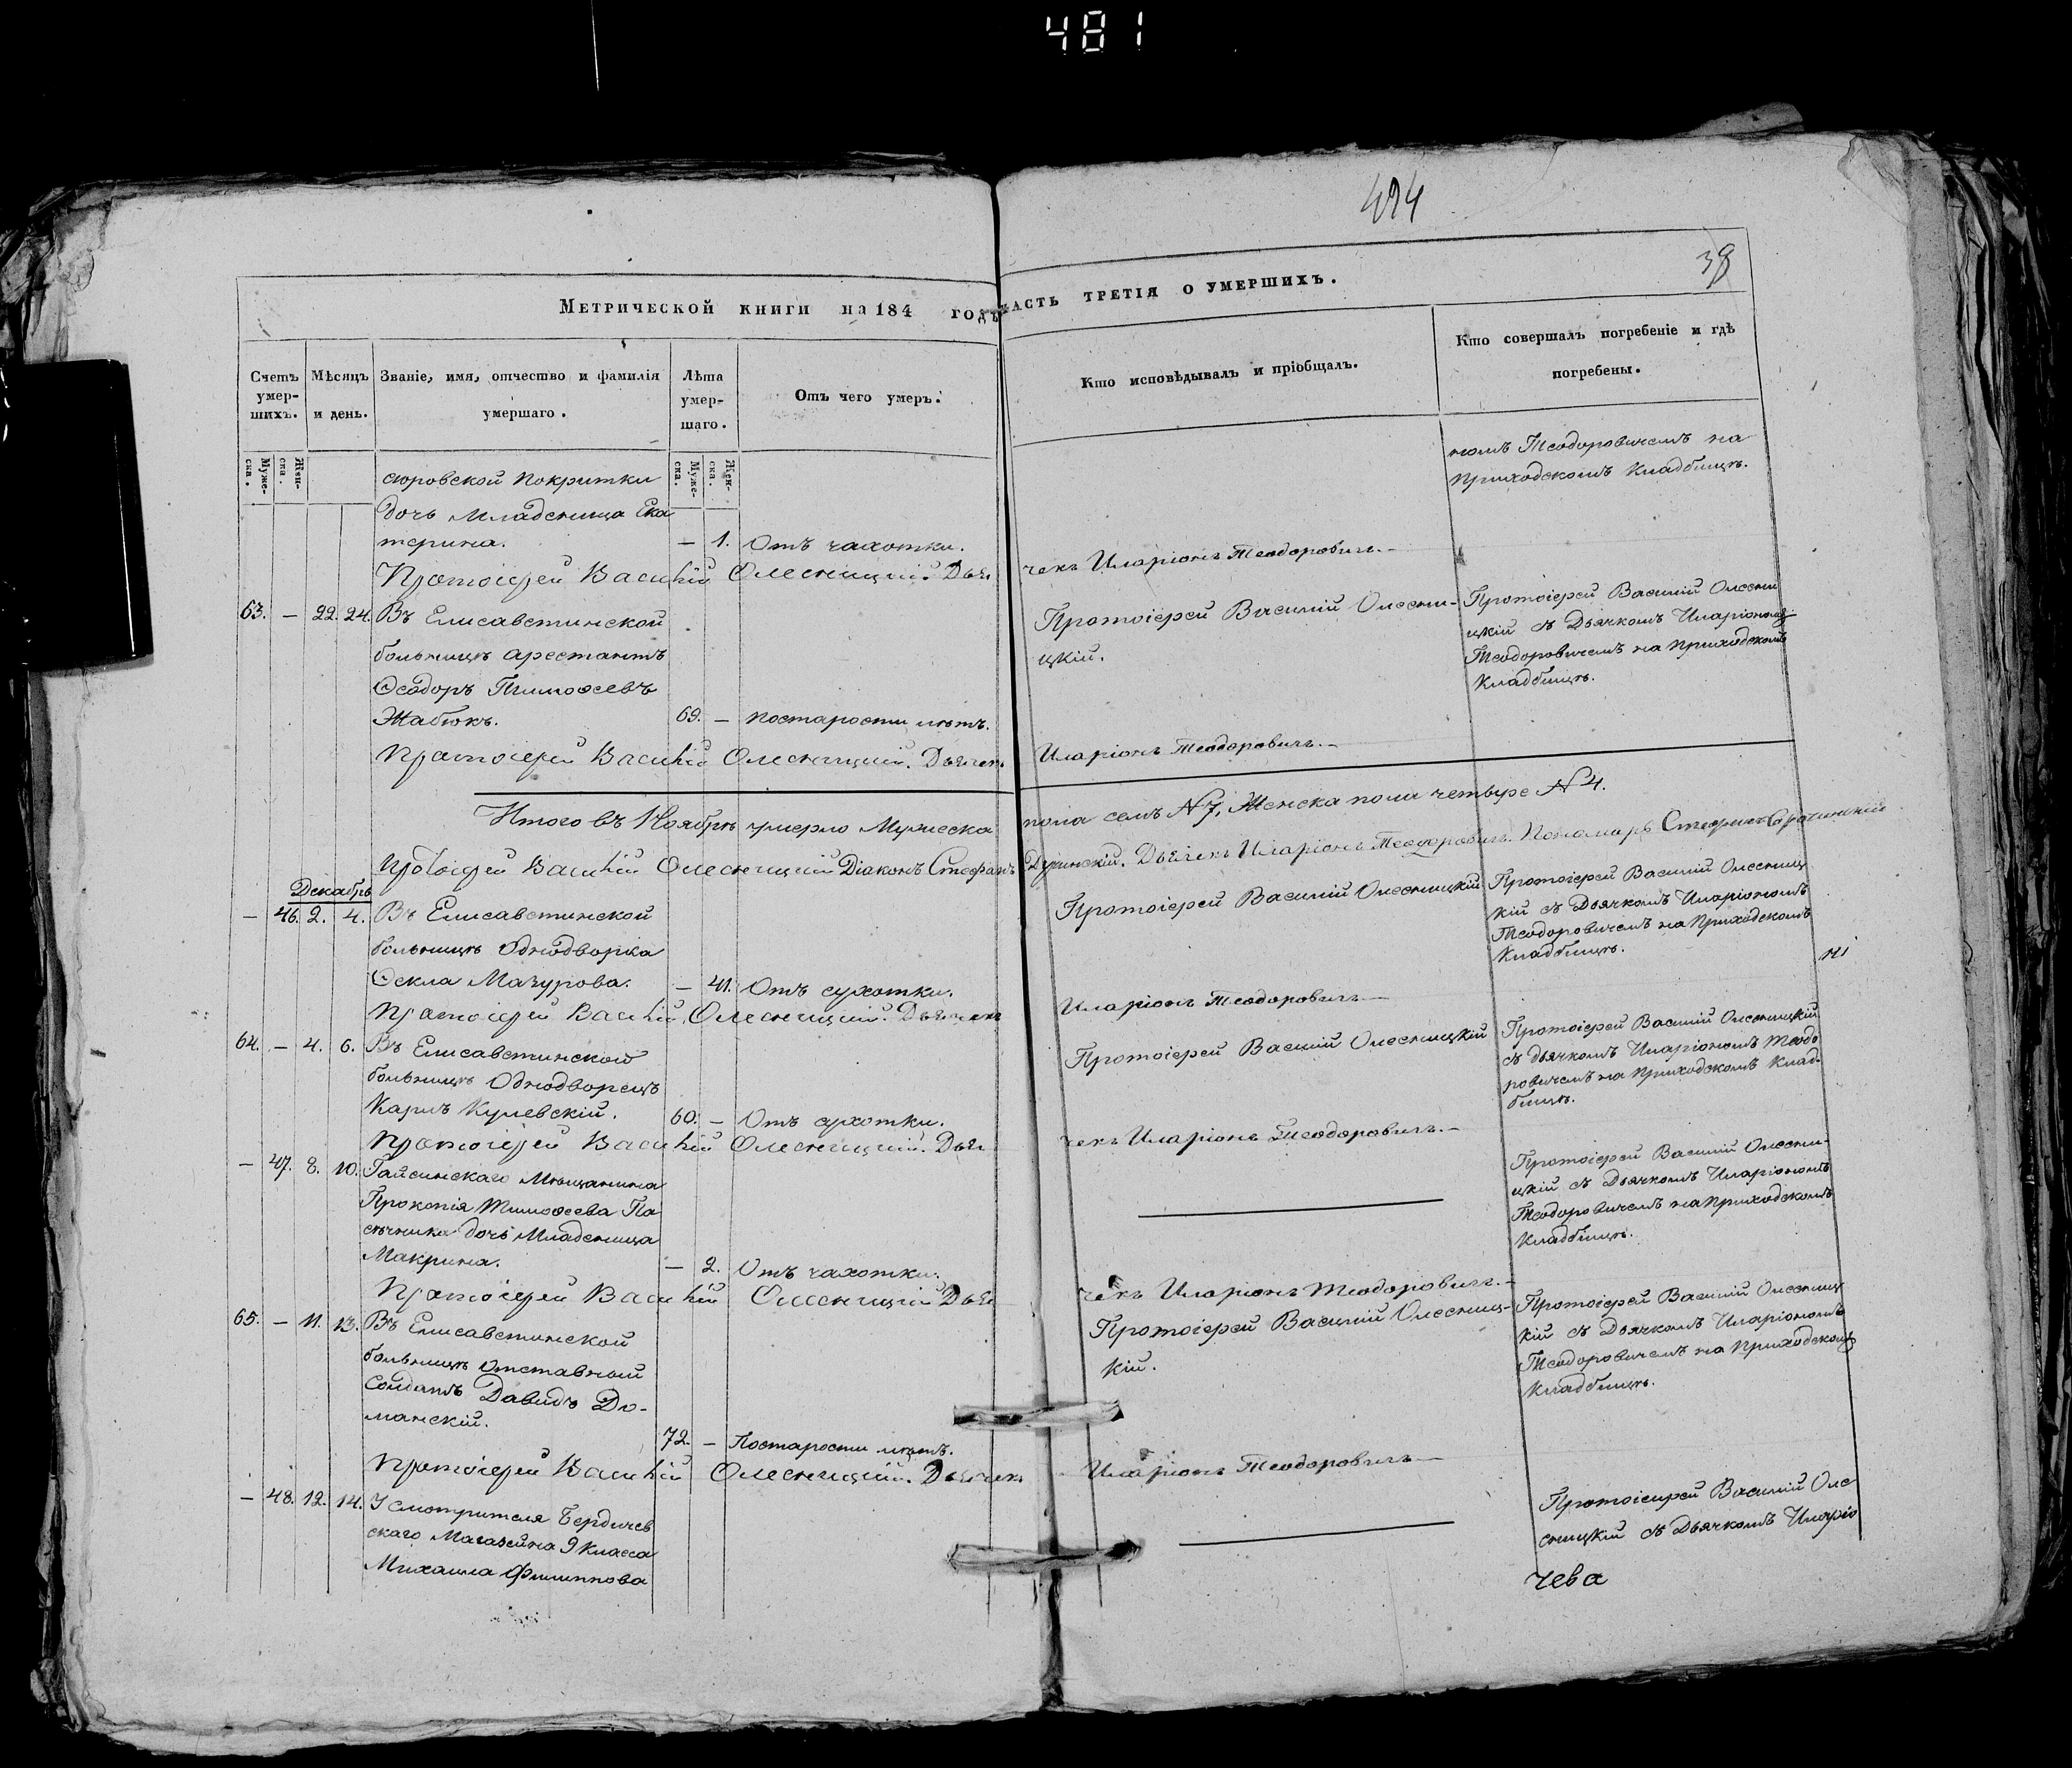 481
494
38
Метрической книги на 184 годъ часть третія о умершихъ.
Счетъ умер-шихъ.
Мѣсяцъ и день.
Званіе, имя, отчество и фамилія умершаго.
Лѣта умер-шаго.
Отъ чего умеръ.
Кто исповѣдывалъ и пріобщалъ.
Кто совершалъ погребеніе и гдѣ погребены.
Муже-ска.
Жен-ска.
Муже-ска.
Жен-ска.
сюровской покритки
дочь младеница Ека
терина. — 1. Отъ чахотки.
номъ Теодоровичемъ на
Приходскомъ Кладбищѣ.
Протоіерей Василій Олесницкій. Дья чекъ Иларіонъ Теодоровичъ. —
63. — 22. 24. Въ Елисаветинской
больницѣ арестантъ
Ѳеодоръ Тимоѳеевъ
Жабюкъ. 69. — Постарости лѣтъ.
Протоіерей Василій Олесни-
цкій.
Протоіерей Василій Олесни
цкій съ Дьячкомъ Иларіономъ
Теодоровичемъ на приходскомъ
Кладбищѣ.
Протоіерей Василій Олесницкій. Дьячекъ Иларіонъ Теодоровичъ. —
Итого въ Ноябрѣ умерло Мужеска пола семъ №7, Женска пола четыре №4.
Протоіерей Василій Олесницкій Діаконъ Стефанъ Дьячекъ Иларіонъ Теодоровичъ. Пономарь Стефанъ
Декабрь
— 46. 2. 4. Въ Елисаветинской
больницѣ Однодворка
Ѳекла Мазурова. — 41. Отъ сухотки.
Протоіерей Василій Олесницкій
Протоіерей Василій Олесниц
кій съ Дьячкомъ Иларіономъ
Теодоровичемъ на Приходскомъ
Кладбищѣ.
Протоіерей Василій Олесницкій. Дьячекъ Иларіонъ Теодоровичъ —
64. — 4. 6. Въ Елисаветинской
больницѣ Однодворецъ
Карлъ Кулевскій. 60. — Отъ сухотки.
Протоіерей Василій Олесницкій
Протоіерей Василій Олесницкій
съ дьячкомъ Иларіономъ Теодо
ровичемъ на приходскомъ Клад-
бищѣ.
Протоіерей Василій Олесницкій. Дья чекъ Иларіонъ Теодоровичъ. —
— 47. 8. 10. Гайсинскаго Мѣщанина
Прокопія Тимоѳеева Па
сѣчника дочь Младеница
Макрина. — 2. Отъ чахотки.
Протоіерей Василій Олесни-
цкій съ Дьячкомъ Иларіономъ
Теодоровичемъ на Приходскомъ
Кладбищѣ.
Протоіерей Василій Олесницкій Дья чекъ Иларіонъ Теодоровичъ. —
65. — 11. 13. Въ Елисаветинской
больницѣ отставный
Солдатъ Давидъ До-
манскій. 72. — Постарости лѣтъ.
Протоіерей Василій Олесниц-
кій.
Протоіерей Василій Олесниц
кій съ Дьячкомъ Иларіономъ
Теодоровичемъ на Приходскомъ
Кладбищѣ.
Протоіерей Василій Олесницкій. Дьячекъ Иларіонъ Теодоровичъ —
— 48. 12. 14. У смотрителя Бердичев
скаго Магазейна 9 класса
Михаила Филиппова
Протоіерей Василій Оле
сницкій съ Дьячкомъ Иларіо
чева